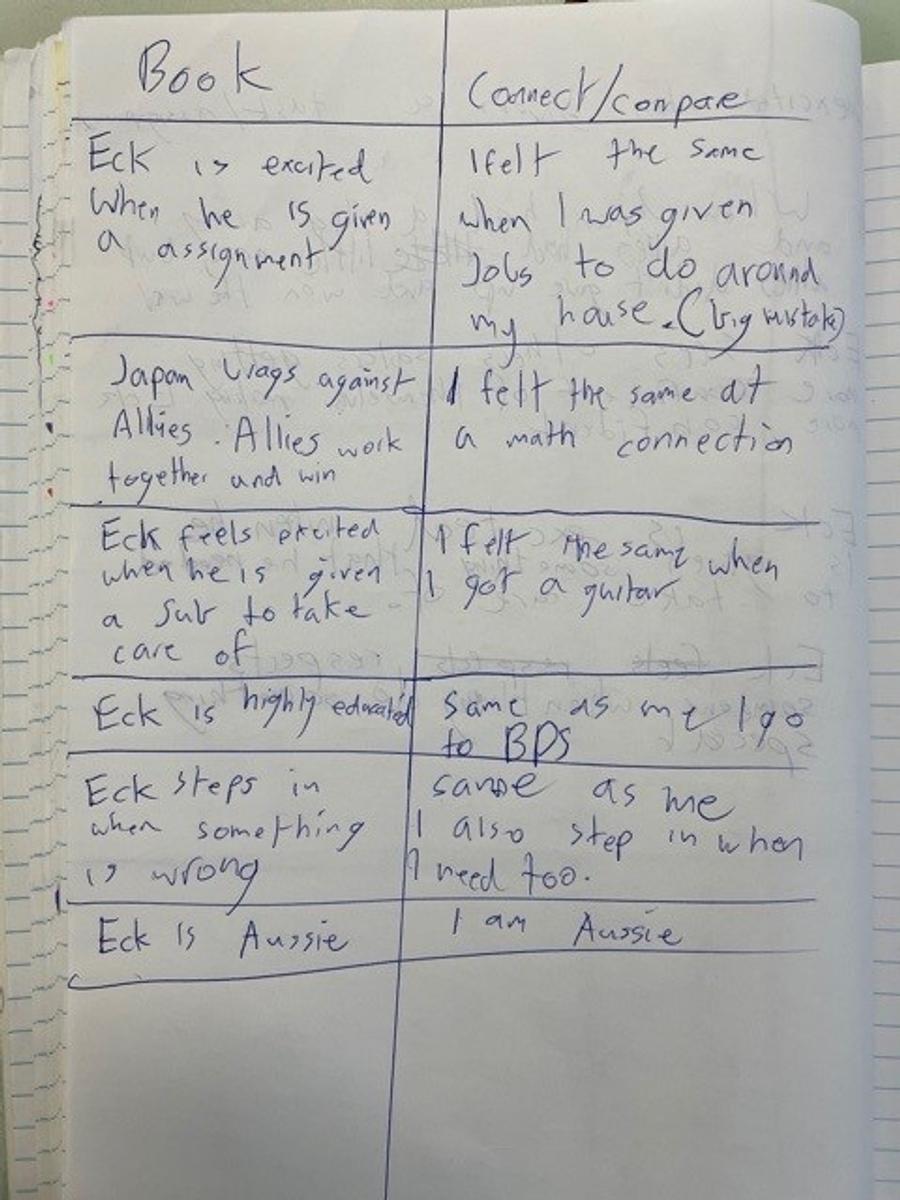 Book
Connect/conpare
Eck is excited
When he is given
a assignment
I felt the same
when I was given
Jobs to do around
my house. (big mistake)
Japan against
Allies. Allies work
together and win
I felt the same at
a math connection
Eck feels excited
when he is given
a sub to take
care of
I felt the same when
I got a guitar
Eck is highly educated
Same as me I go
to BPS
Eck steps in
when something
is wrong
same as me
I also step in when
I need too.
Eck is Aussie
I am Aussie